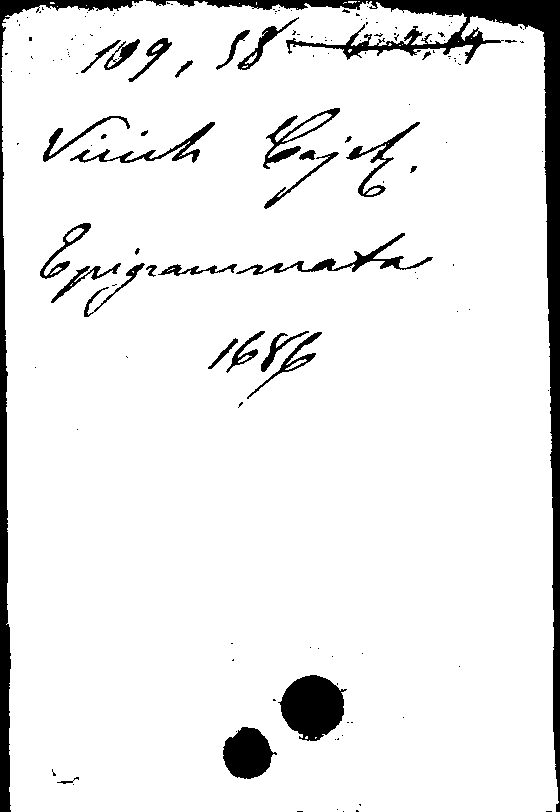 109, 58 6.2.19
Vicich Cajet.
Epigrammata
1686